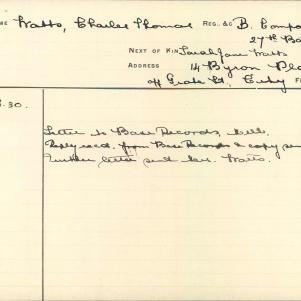 ME Watts, Charles Thomas REG. &c B. Comp
27th Ba
NEXT OF KIN Sarah Jane Watts
ADDRESS 14 Byron Pla
off Grote St. City F
.30.
Letter to Base Records, Melb.
Reply recd. from Base Records & copy sen
Further letter sent Mrs. Watts.